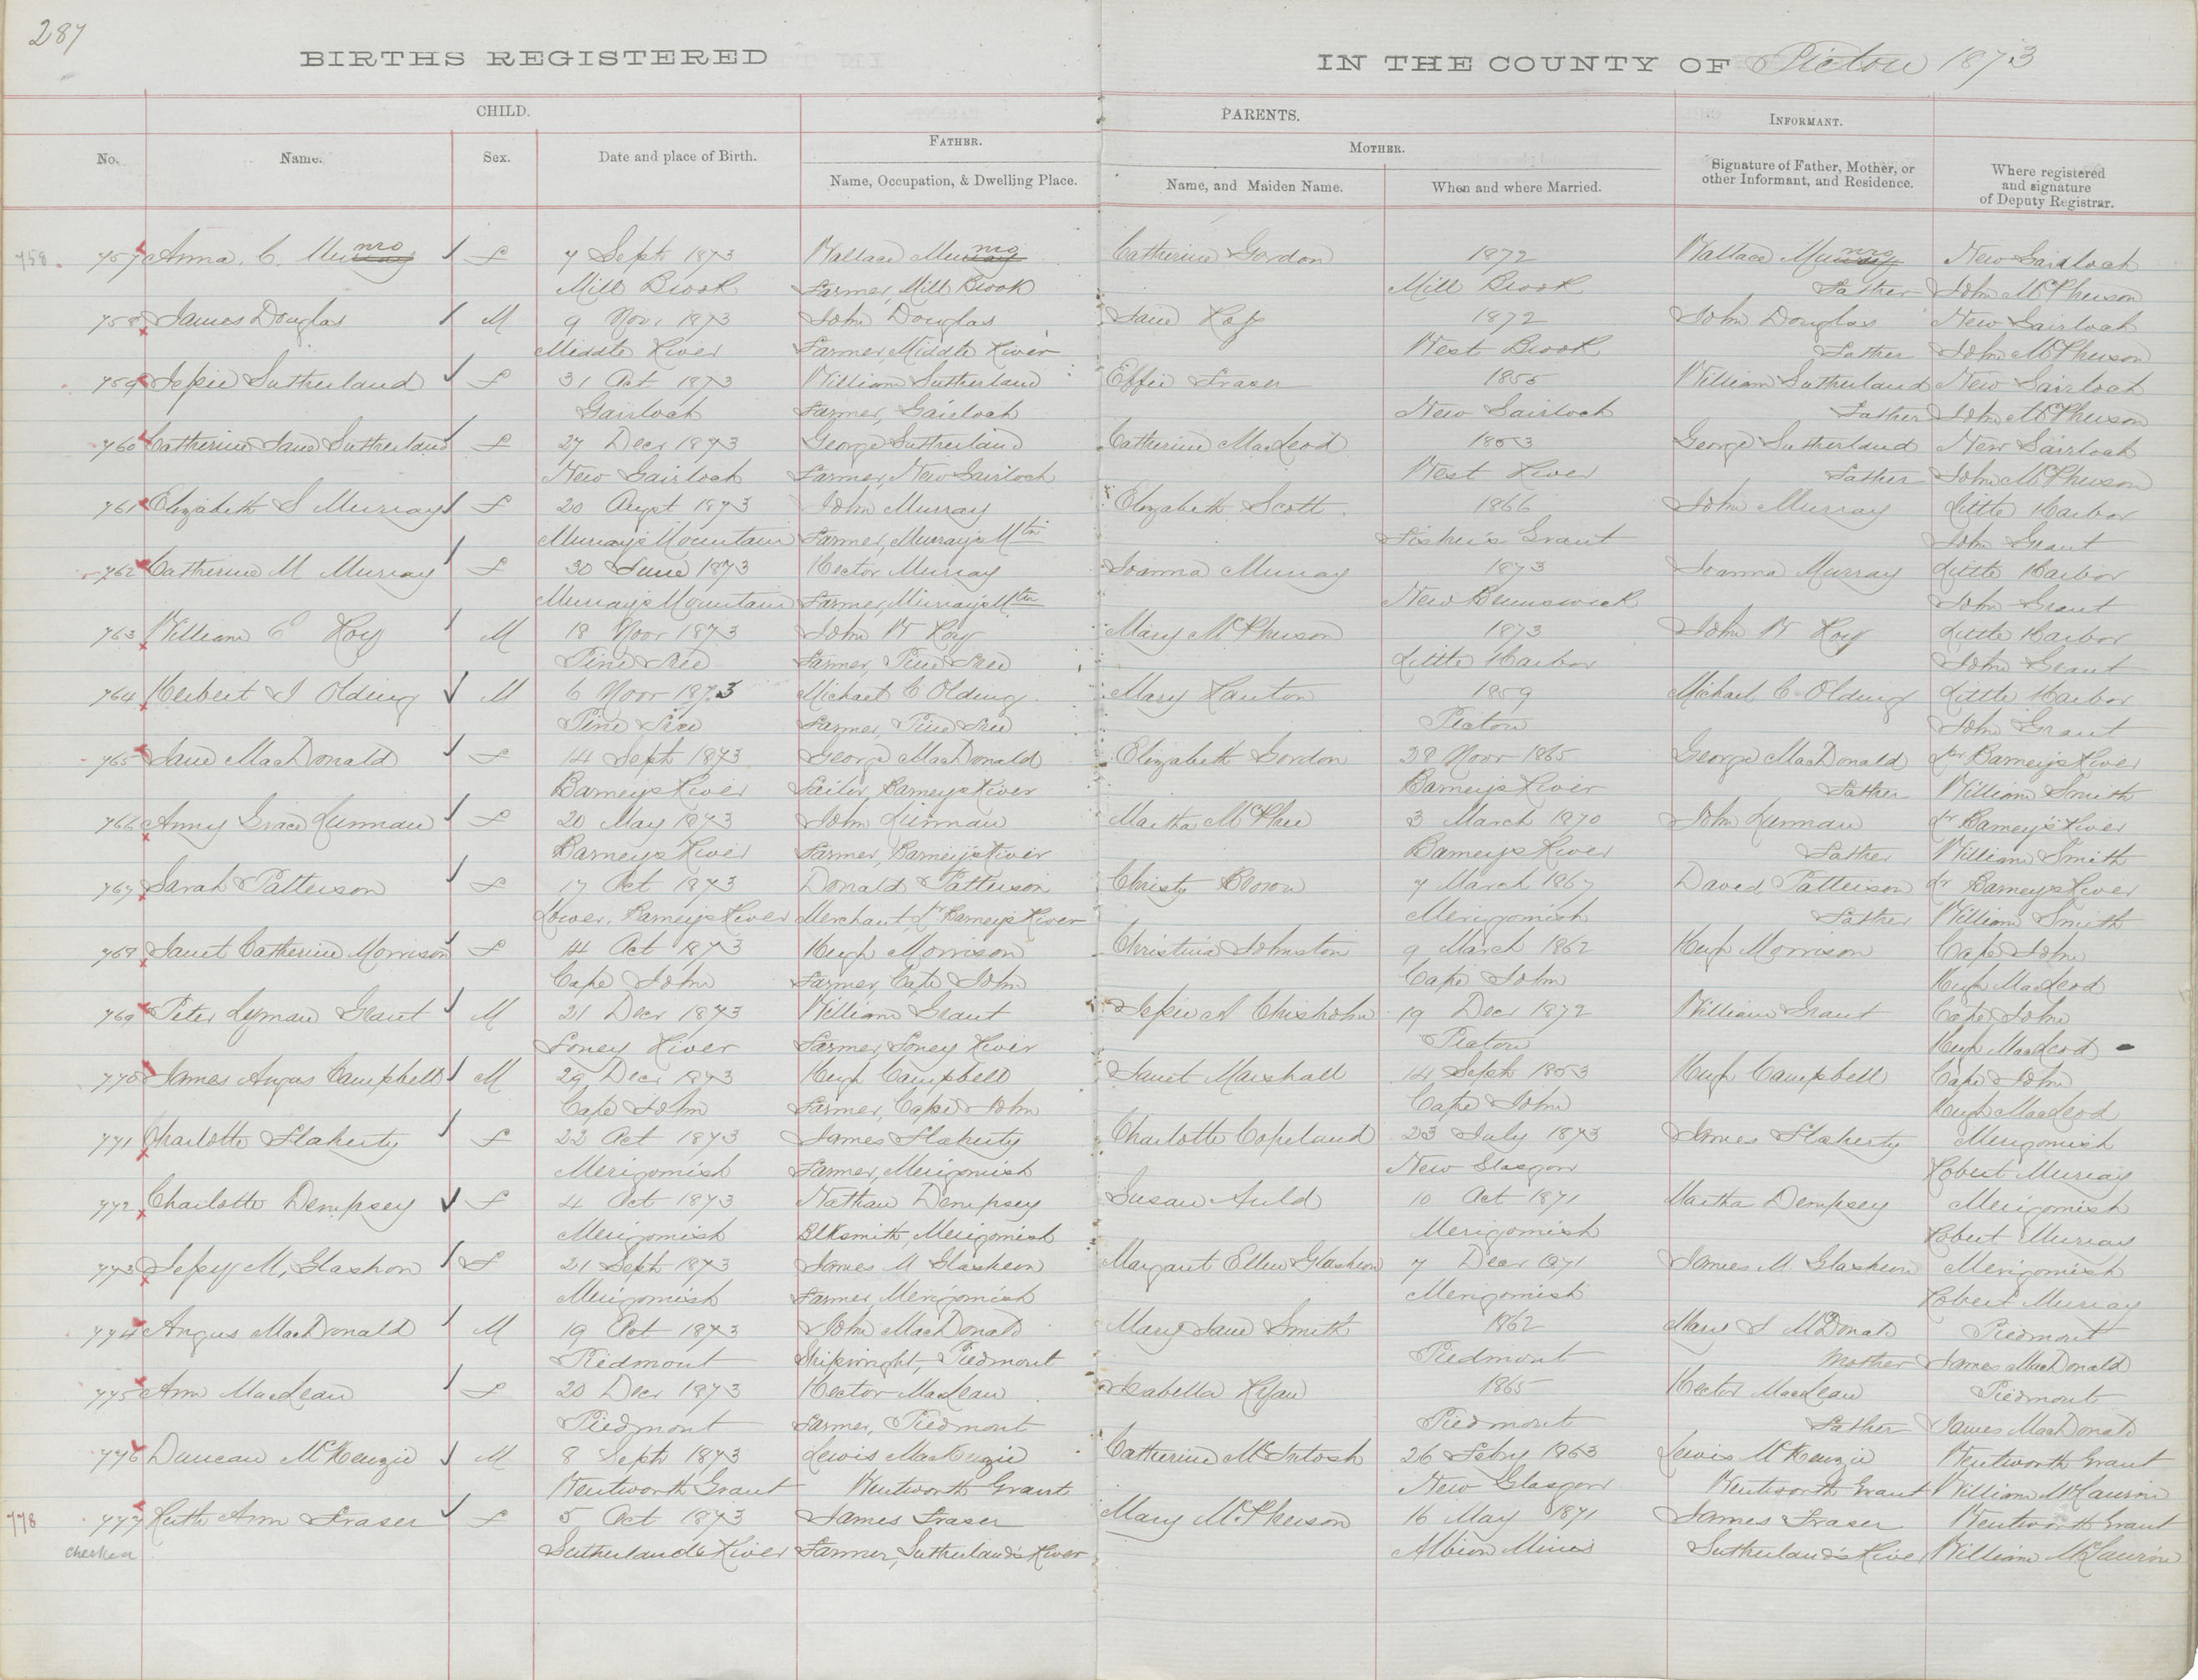 287
BIRTHS REGISTERED IN THE COUNTY OF Pictou 1873
CHILD. PARENTS. INFORMANT.
FATHER. MOTHER.
No. Name. Sex. Date and place of Birth. Name, Occupation, & Dwelling Place. Name, and Maiden Name. When and where Married. Signature of Father, Mother, or other Informant, and Residence. Where registered and signature of Deputy Registrar.
758. 757 Anna. C. Munro f 7 Sept 1873 Wallace Munro Catherine Gordon 1872 Wallace Munro New Gairloch
Mill Brook Farmer, Mill Brook Mill Brook Father John McPherson
758 James Douglas M 9 Novr 1873 John Douglas Jane Ross 1872 John Douglas New Gairloch
Middle River Farmer, Middle River West Brook Father John McPherson
759 Jessie Sutherland f 31 Oct 1873 William Sutherland Effie Fraser 1855 William Sutherland New Gairloch
Gairloch Farmer, Gairloch New Gairloch Father John McPherson
760 Catherine Jane Sutherland f 27 Decr 1873 George Sutherland Catherine MacLeod 1853 George Sutherland New Gairloch
New Gairloch Farmer, New Gairloch West River Father John McPherson
761 Elizabeth S Murray f 20 Augt 1873 John Murray Elizabeth Scott 1866 John Murray Little Harbor
Murray's Mountain Farmer, Murray's Mtn Fisher's Grant John Grant
762 Catherine M Murray f 30 June 1873 Hector Murray Joanna Murray 1873 Joanna Murray Little Harbor
Murray's Mountain Farmer, Murray's Mtn New Brunswick John Grant
763 William C Roy M 18 Novr 1873 John W Roy Mary McPherson 1873 John W Roy Little Harbor
Pine Tree Farmer, Pine Tree Little Harbor John Grant
764 Herbert J Olding M 6 Novr 1873 Michael C Olding Mary Hanton 1859 Michael C Olding Little Harbor
Pine Tree Farmer, Pine Tree Pictou John Grant
765 Jane MacDonald f 14 Sept 1873 George MacDonald Elizabeth Gordon 28 Novr 1865 George MacDonald Lr Barneys River
Barneys River Tailor, Barneys River Barneys River Father William Smith
766 Anny Grace Lunnan f 20 May 1873 John Lunnan Martha McPhee 3 March 1870 John Lunnan Lr Barney's River
Barneys River Farmer, Barneys River Barneys River Father William Smith
767 Sarah Patterson f 17 Oct 1873 Donald Patterson Christy Brown 7 March 1867 David Patterson Lr Barneys River
Lower, Barneys River Merchant, Lr Barneys River Merigomish Father William Smith
768 Janet Catherine Morrison f 14 Oct 1873 Hugh Morrison Christina Johnston 9 March 1862 Hugh Morrison Cape John
Cape John Farmer, Cape John Cape John Hugh MacLeod
769 Peter Lyman Grant M 21 Decr 1873 William Grant Jessie A Chisholm 19 Decr 1872 William Grant Cape John
Toney River Farmer, Toney River Pictou Hugh MacLeod
770 James Angus Campbell M 29 Decr 1873 Hugh Campbell Janet Marshall 14 Sept 1853 Hugh Campbell Cape John
Cape John Farmer, Cape John Cape John Hugh MacLeod
771 Charlotte Flaherty f 22 Oct 1873 James Flaherty Charlotte Copeland 23 July 1873 James Flaherty Merigomish
Merigomish Farmer, Merigomish New Glasgow Robert Murray
772 Charlotte Dempsey f 4 Oct 1873 Nathan Dempsey Susan Auld 10 Oct 1871 Martha Dempsey Merigomish
Merigomish Blksmith, Merigomish Merigomish Robert Murray
773 Jessy M, Glashon f 21 Sept 1873 James M Glasheen Margaret Ellen Glasheen 7 Decr 1871 James M. Glasheen Merigomish
Merigomish Farmer, Merigomish Merigomish Robert Murray
774 Angus MacDonald M 19 Oct 1873 John MacDonald Mary Jane Smith 1862 Mary J McDonald Piedmont
Piedmont Shipwright, Piedmont Piedmont Mother James MacDonald
775 Ann MacLean f 20 Decr 1873 Hector MacLean Isabella Ryan 1865 Hector MacLean Piedmont
Piedmont Farmer, Piedmont Piedmont Father James MacDonald
776 Duncan McKenzie M 8 Sept 1873 Lewis MacKenzie Catherine McIntosh 26 Feby 1863 Lewis McKenzie Wentworth Grant
Wentworth Grant Wentworth Grant New Glasgow Wentworth Grant William McLaurin
778 777 Ruth Ann Fraser f 5 Oct 1873 James Fraser Mary McPherson 16 May 1871 James Fraser Wentworth Grant
checked Sutherland's River Farmer, Sutherland's River Albion Mines Sutherland's River William McLaurin